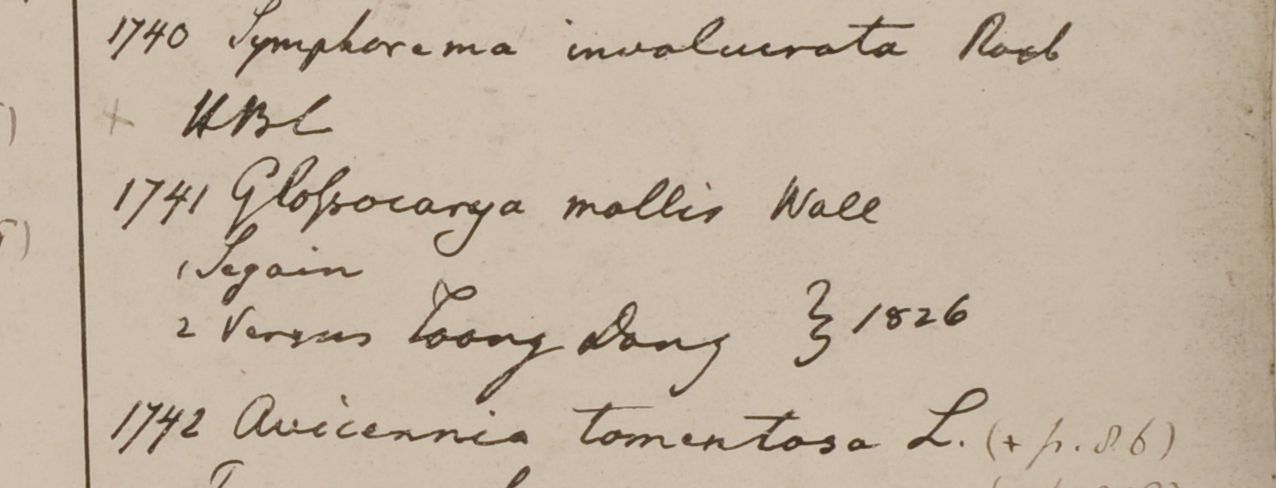 1740 Symphorema involucrata Roxb
+ HBC
1741 Gloſsocarya mollis Wall
1 Segain
2 Versus Toong Dong } 1826
1742 Avicennia tomentosa L. (+ p. 86)